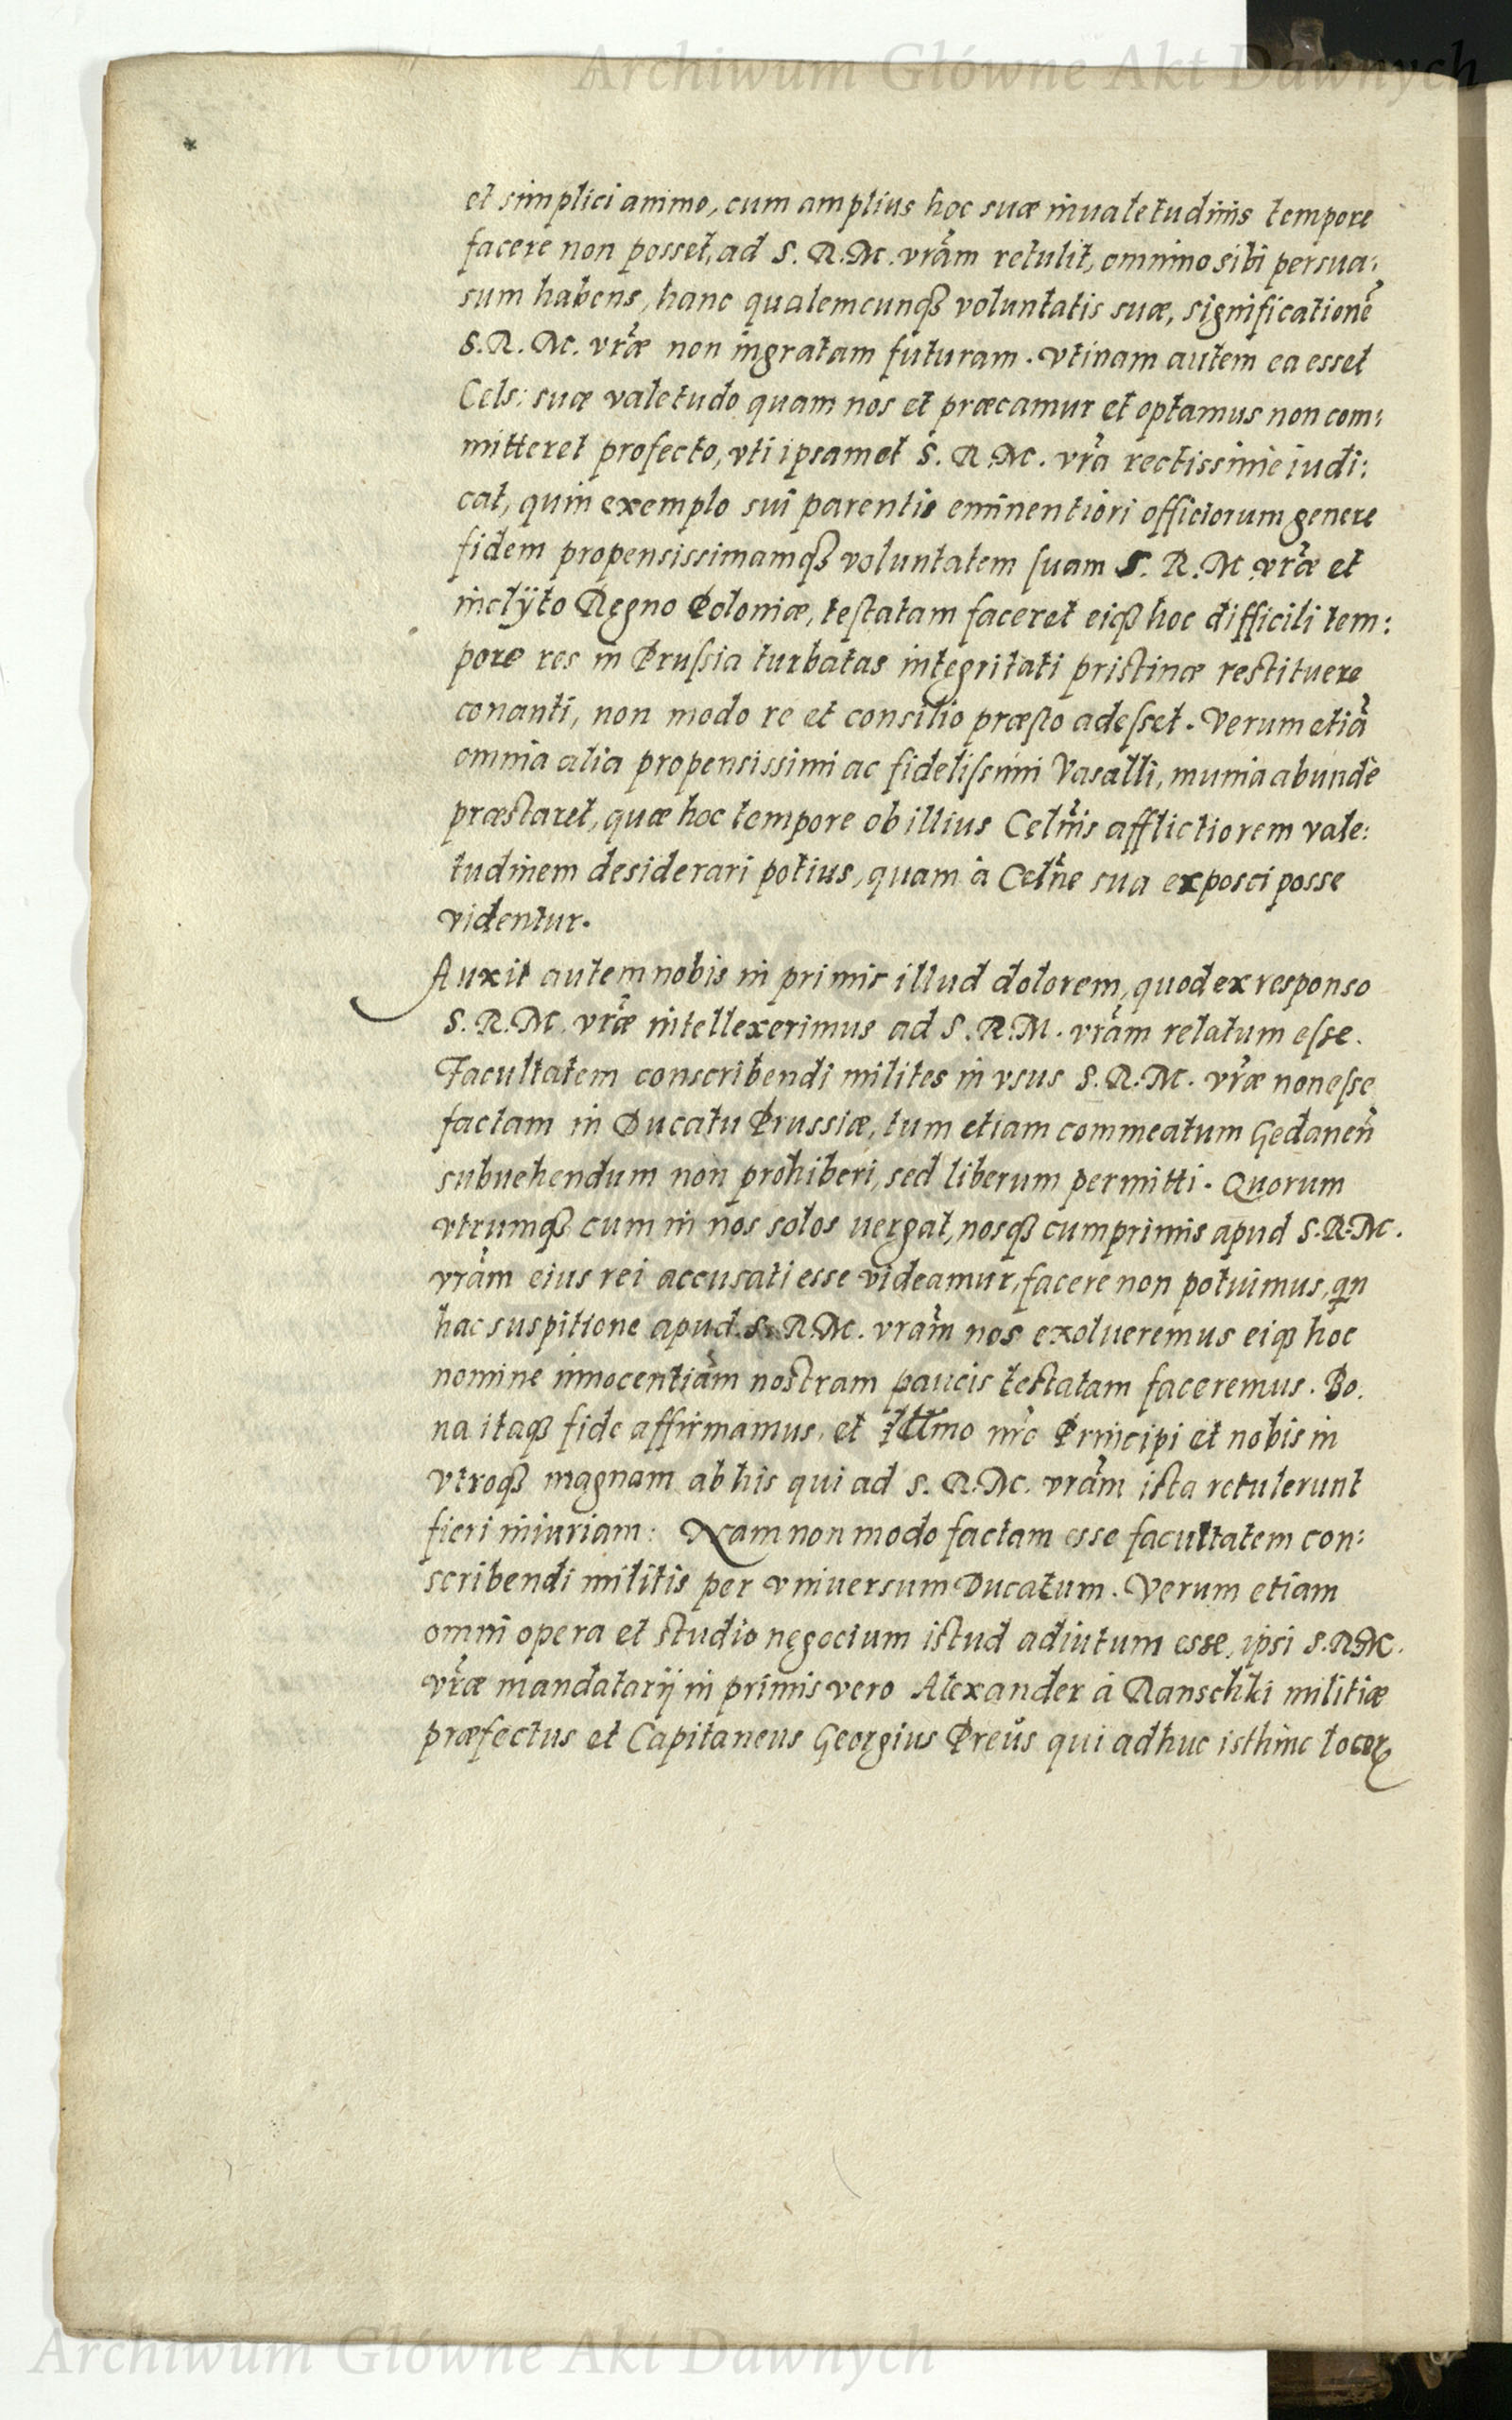 Archiwum Główne Akt Dawnych
et simplici animo, cum amplius hoc suæ inualetudinis tempore
facere non posset, ad S. R. M. vr̃am retulit, omnino sibi persua:
sum habens, hanc qualemcunq₃ voluntatis suæ, significationẽ
S. R. M. vr̃æ non ingratam futuram. Vtinam autem ea esset
Cels: suæ valetudo quam nos et præcamur et optamus non com:
mitteret profecto, vti ipsamet S. R. M. vr̃a rectissimè iudi:
cat, quin exemplo sui parentis eminentiori officiorum genere
fidem propensissimamq₃ voluntatem suam S. R. M. vr̃æ et
inclÿto Regno Poloniæ, testatam faceret eiq₃ hoc difficili tem:
pore res in Prussia turbatas integritati pristinæ restituere
conanti, non modo re et consilio præsto adesset. Verum etiã
omnia alia propensissimi ac fidelissimi Vasalli, munia abundè
præstaret, quæ hoc tempore ob illius Celnĩs afflictiorem vale:
tudinem desiderari potius, quam à Celñe sua exposci posse
videntur.
Auxit autem nobis in primis illud dolorem, quod ex responso
S. R. M. vr̃æ intellexerimus ad S. R. M. vr̃am relatum esse.
Facultatem conscribendi milites in vsus S. R. M. vr̃æ non esse
factam in Ducatu Prussiæ, tum etiam commeatum Gedaneñ
subuehendum non prohiberi, sed liberum permitti. Quorum
vtrumq₃ cum in nos solos uergat, nosq₃ cumprimis apud S. R. M.
vr̃am eius rei accusati esse videamur, facere non potuimus, qñ
hac suspitione apud S. R. M. vram̃ nos exolueremus eiq₃ hoc
nomine innocentiam nostram paucis testatam faceremus. Bo.
na itaq₃ fide affirmamus, et Illmo nr̃o Principi et nobis in
vtroq₃ magnam ab his qui ad S. R. M. vr̃am ista retulerunt
fieri iniuriam: Nam non modo factam esse facultatem con:
scribendi militis per vniuersum Ducatum. Verum etiam
omni opera et studio negocium istud adiutum esse, ipsi S. R. M.
vr̃æ mandatarij in primis vero Alexander à Ranschki militiæ
præfectus et Capitaneus Georgius Preŭs qui adhuc isthinc locorꝝ
Archiwum Główne Akt Dawnych